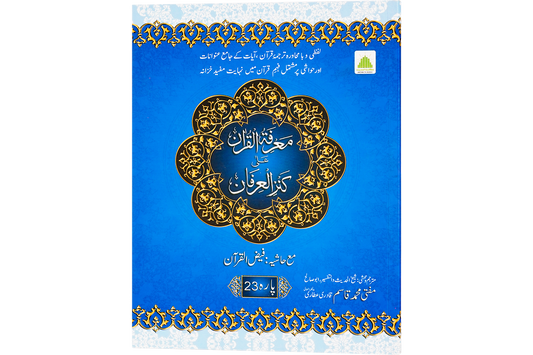 لفظی و بامحاورہ ترجمۂ قرآن، آیات کے جامع عنوانات
اور حواشی پر مشتمل فہمِ قرآن میں نہایت مفید خزانہ
معرفۃ القرآن
علیٰ
کنز العرفان
مع حاشیہ: فیض القرآن
پارہ 23
مترجم و محشی: شیخ الحدیث والتفسیر، ابو صالح
مفتی محمد قاسم قادری عطاری